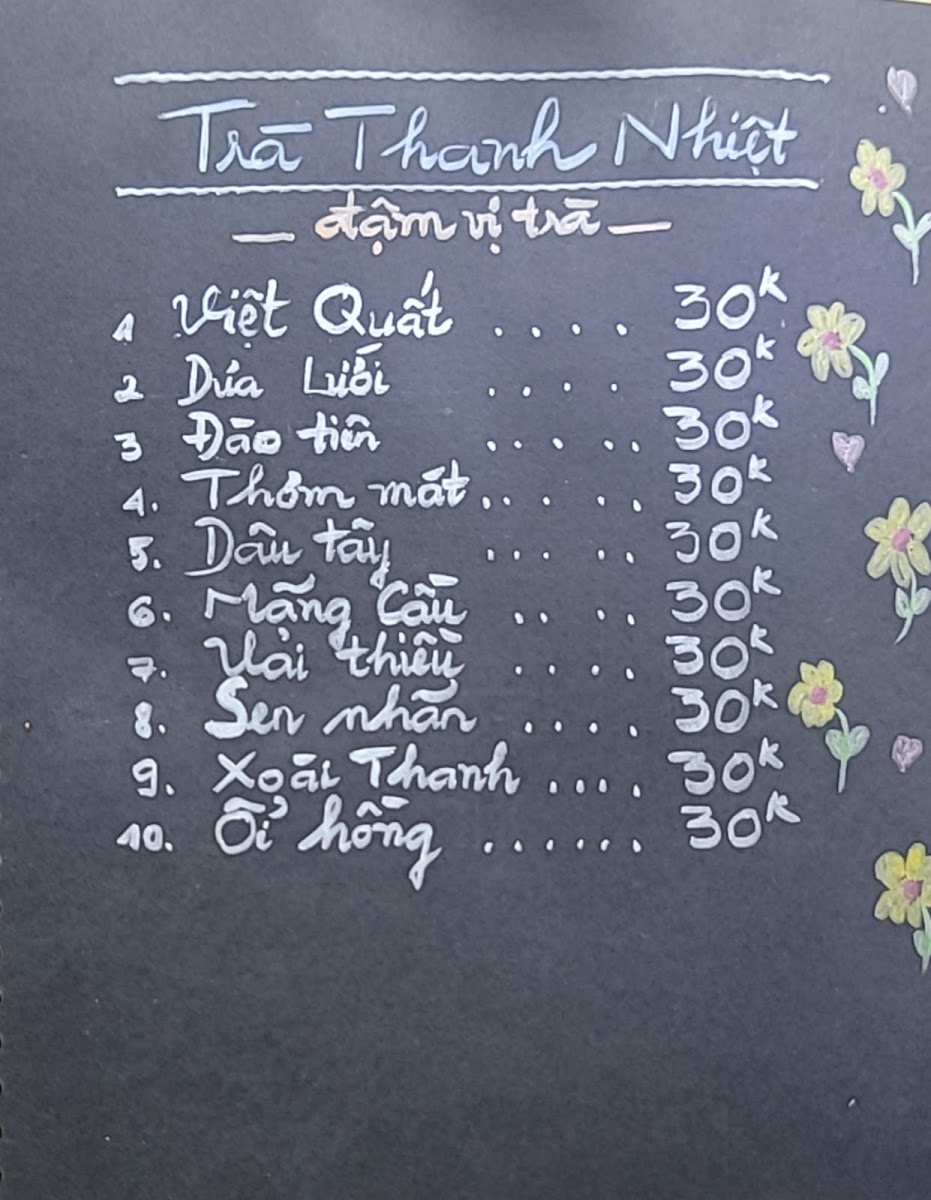 Trà Thanh Nhiệt
— đậm vị trà —
1 Việt Quất .... 30k
2 Dưa Lưới .... 30k
3 Đào tiên ..... 30k
4. Thơm mát ..... 30k
5. Dâu tây ..... 30k
6. Mãng Cầu .... 30k
7. Vải thiều .... 30k
8. Sen nhãn .... 30k
9. Xoài Thanh .... 30k
10. Ổi hồng ...... 30k